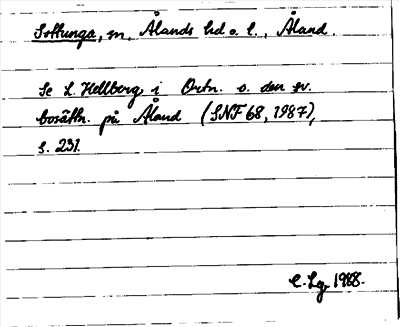 Sottunga, m, Ålands hd o. l., Åland.
Se L. Hellberg i Ortn. o. den sv.
bosättn. på Åland (SNF 68, 1987),
s. 231.
C. Lg, 1988.